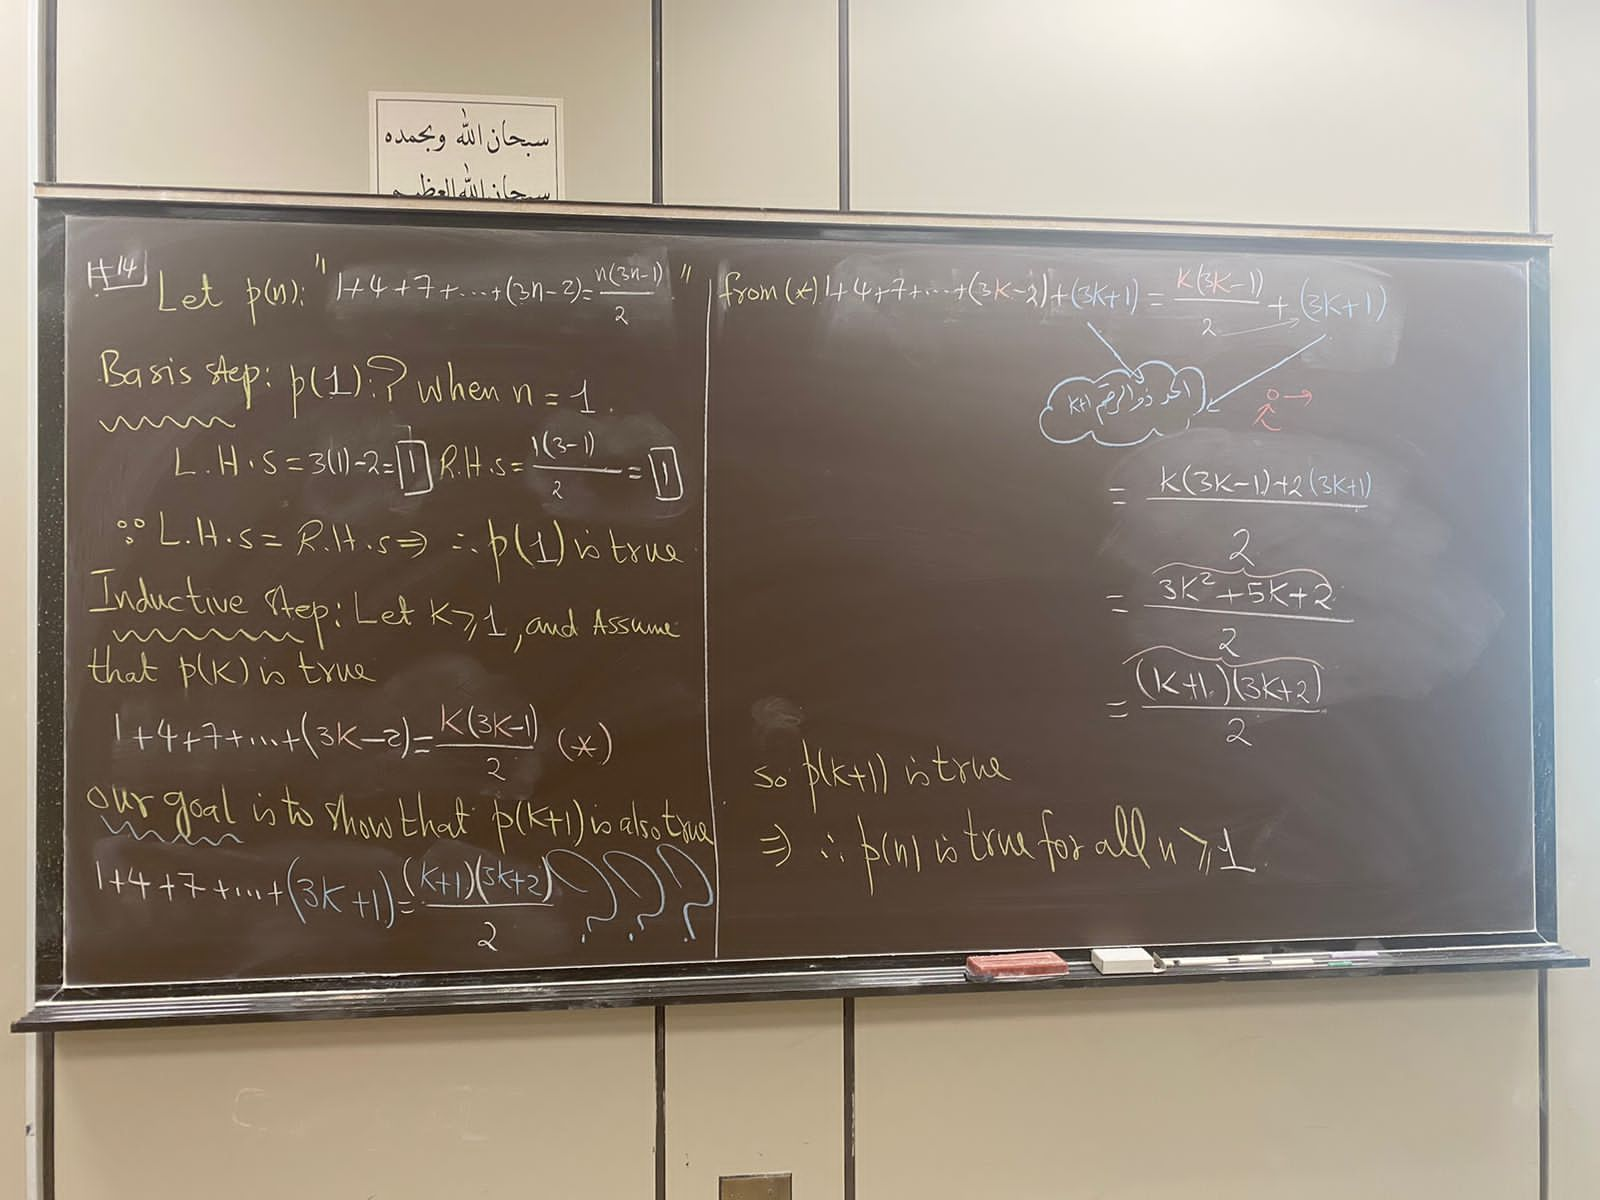 سبحان الله وبحمده
سبحان الله العظيم
#14
Let p(n): "1+4+7+...+(3n-2)=n(3n-1)/2."
Basis step: p(1):? when n=1.
L.H.S=3(1)-2=1 R.H.S=1(3-1)/2=1
∵ L.H.S=R.H.S⇒ ∴ p(1) is true
Inductive step: Let K≥1, and Assume
that p(K) is true
1+4+7+...+(3K-2)=K(3K-1)/2 (*)
our goal is to show that p(K+1) is also true
1+4+7+...+(3K+1)=(K+1)(3K+2)/2 ???
from (*) 1+4+7+...+(3K-2)+(3K+1)=K(3K-1)/2+(3K+1)
الحد ذو الرقم K+1
=K(3K-1)+2(3K+1)/2
=3K²+5K+2/2
=(K+1)(3K+2)/2
so p(K+1) is true
⇒ ∴ p(n) is true for all n≥1.